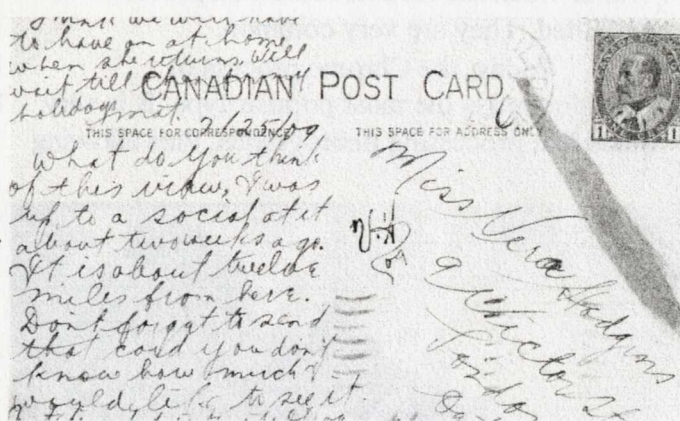 to have an at home
when she returns. Will
wait till
holidays mat.
CANADIAN POST CARD
THIS SPACE FOR CORRESPONDENCE
THIS SPACE FOR ADDRESS ONLY
2/25/09
What do you think
of this view, I was
up to a social at it
about two weeks ago.
It is about twelve
miles from here.
Dont forget to send
that card you dont
know how much I
would like to see it.
Miss Vera Hodgins
9 Victor St
London